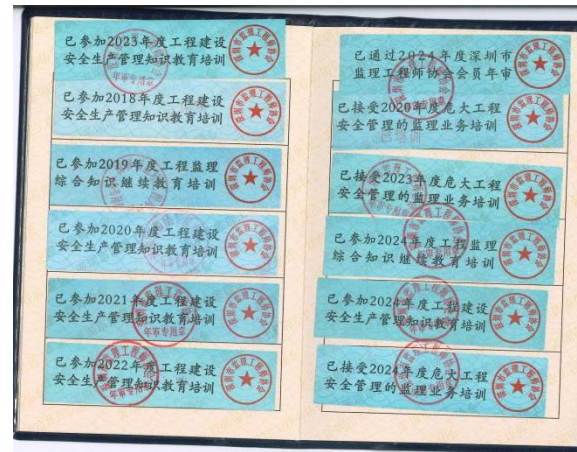 已参加2023年度工程建设
安全生产管理知识教育培训
已参加2018年度工程建设
安全生产管理知识教育培训
已参加2019年度工程监理
综合知识继续教育培训
已参加2020年度工程建设
安全生产管理知识教育培训
已参加2021年度工程建设
安全生产管理知识教育培训
年审专用章
已参加2022年度工程建设
安全生产管理知识教育培训
年审专用章
已通过2024年度深圳市
监理工程师协会会员年审
已接受2020年度危大工程
安全管理的监理业务培训
已接受2023年度危大工程
安全管理的监理业务培训
已参加2024年度工程监理
综合知识继续教育培训
已参加2024年度工程建设
安全生产管理知识教育培训
已接受2024年度危大工程
安全管理的监理业务培训